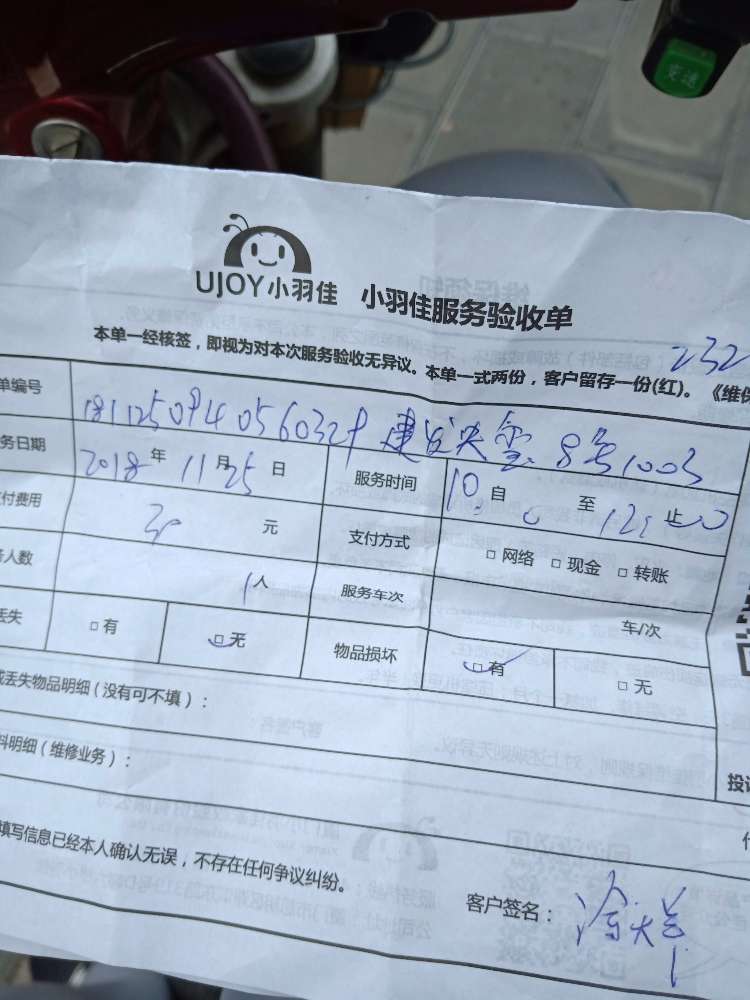 变速
UJOY小羽佳 小羽佳服务验收单
232
本单一经核签,即视为对本次服务验收无异议。本单一式两份,客户留存一份(红)。《维保
单编号 建发央玺 8号1003
务日期 2018年 11月25日 服务时间 10:00 自 至 12:00 止
付费用 元 支付方式 □ 网络 □ 现金 □ 转账
人数 1人 服务车次 车/次
丢失 □ 有 □ 无 物品损坏 □ 有 □ 无
或丢失物品明细(没有可不填):
料明细(维修业务):
投诉
填写信息已经本人确认无误,不存在任何争议纠纷。
客户签名: